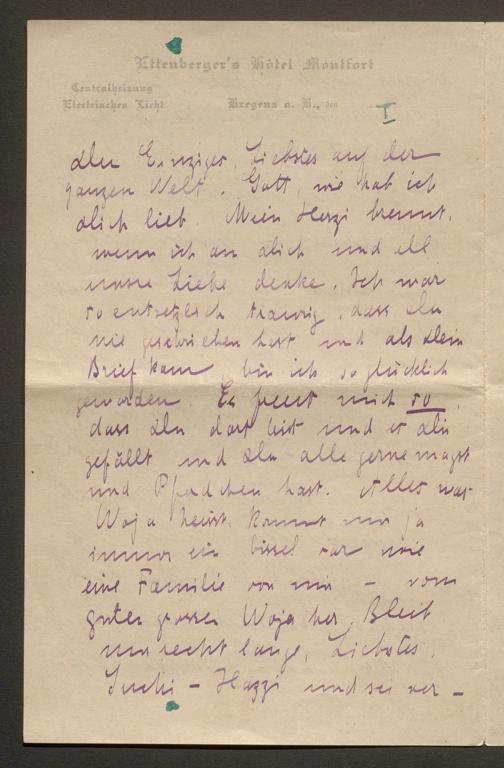 Ettenberger's Hôtel Montfort
Centralheizung
Electrisches Licht
Bregenz a. B., den
I
du Einziges, Liebstes auf der
ganzen Welt. Gott, wie hab ich
dich lieb. Mein Herzi brennt,
wenn ich an dich und all
unsre Liebe denke. Ich war
so entsetzlich traurig, dass du
nie geschrieben hast und als dein
Brief kam, bin ich so glücklich
geworden. Es freut mich so,
dass du dort bist und es dir
gefällt und du alle gerne magst
und Pferdchen hast. Alles was
Woja heisst, kommt mir ja
immer ein bissel vor wie
eine Familie von mir – vom
guten grossen Woja her. Bleib
nur recht lange, Liebstes,
– Hazzi und sei ver –